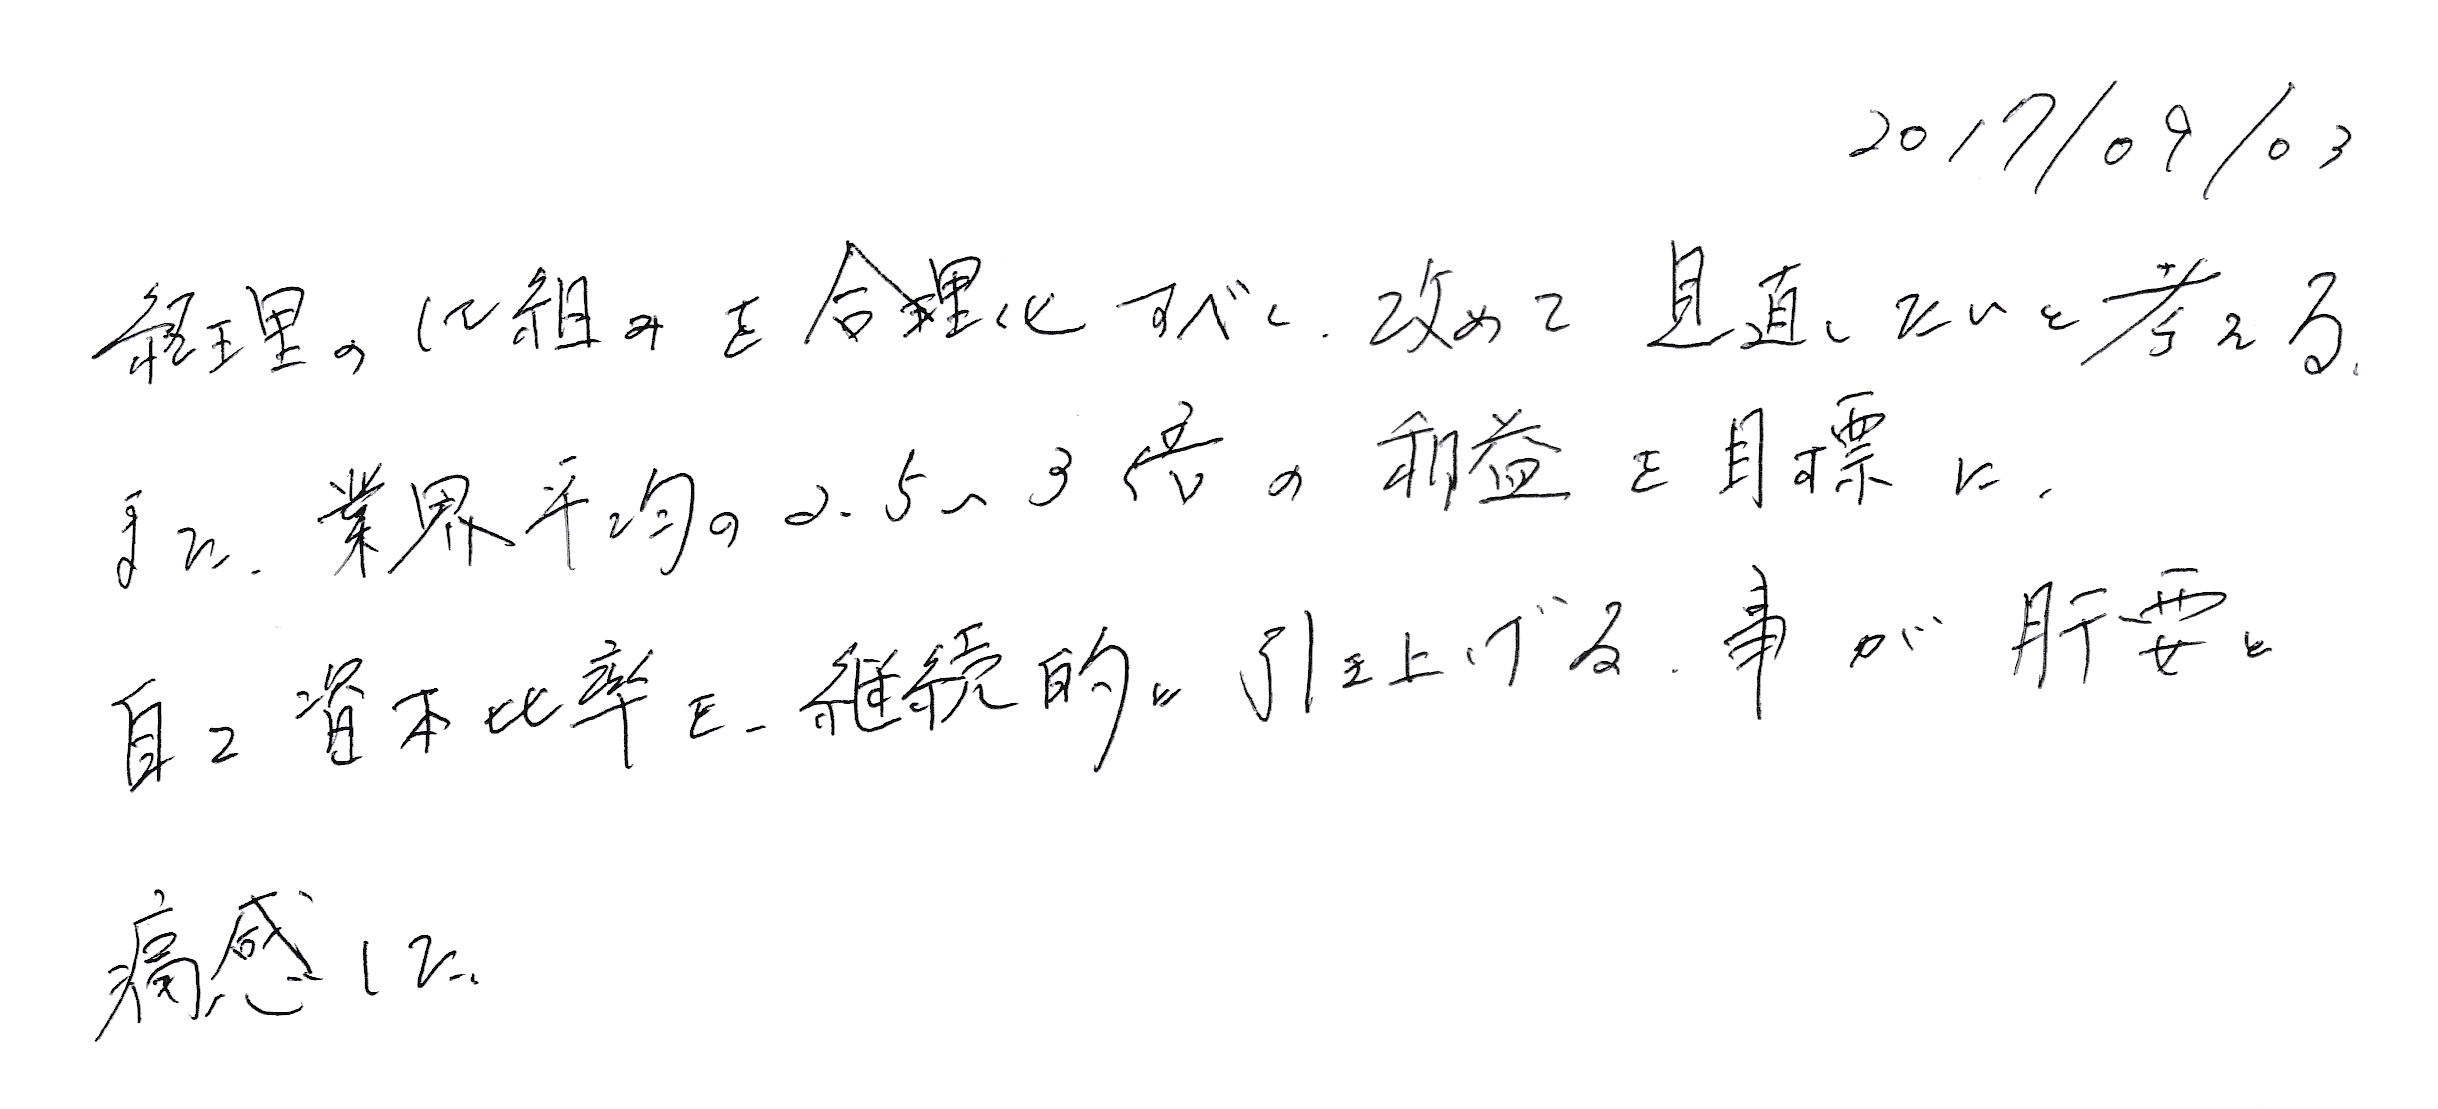 2017/09/03
経理の仕組みを合理化すべく、改めて見直したいと考える。
また、業界平均の2.5〜3倍の利益を目標に、
自己資本比率を、継続的に引き上げる、事が肝要と
痛感した。